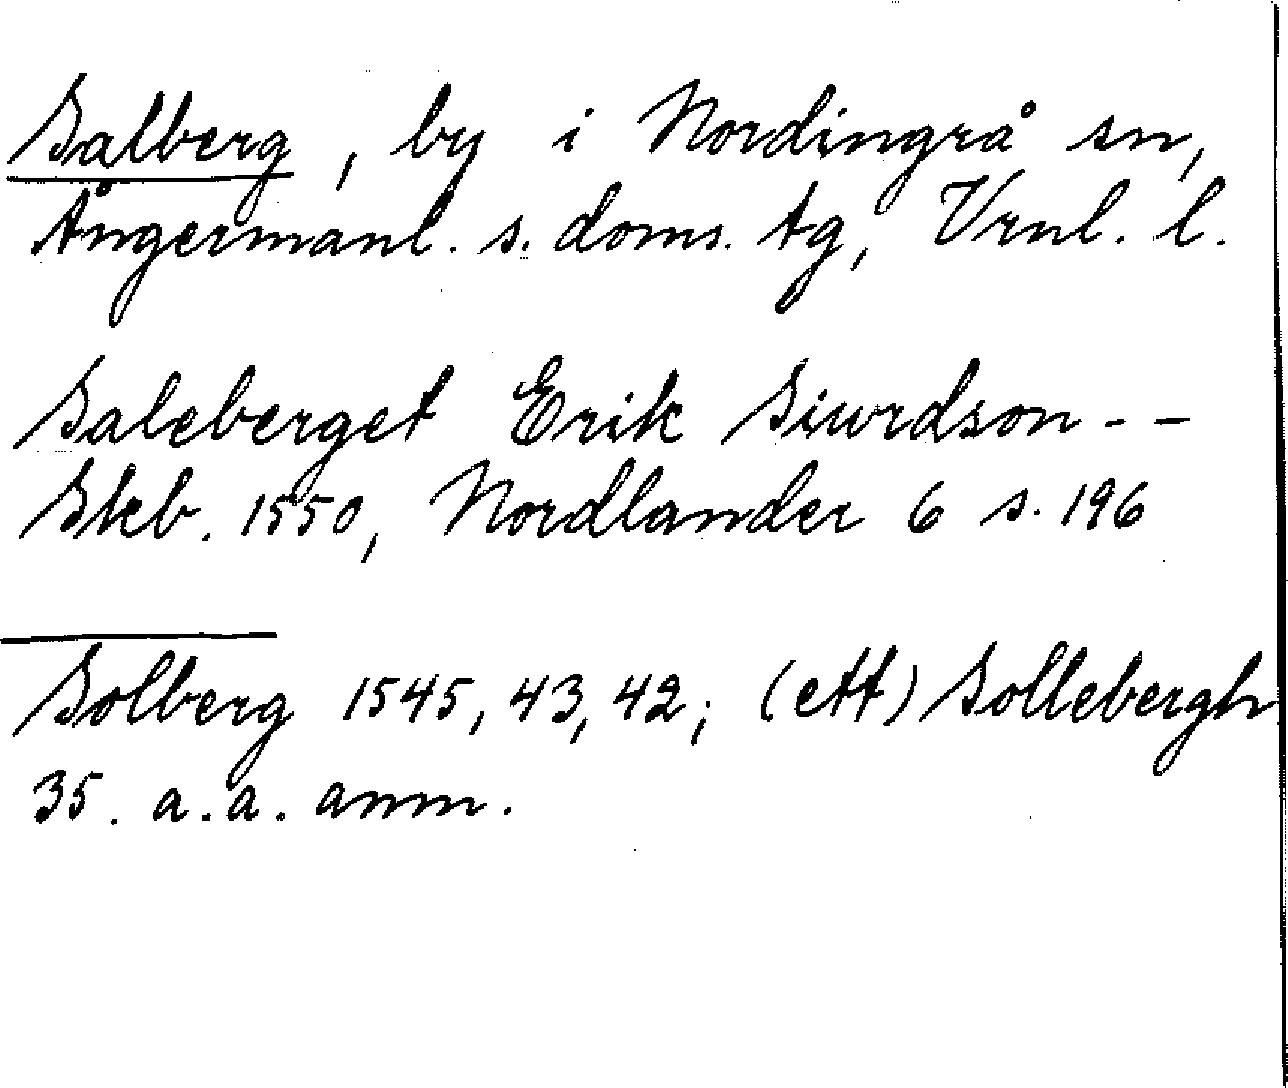 Salberg, by i Nordingrå sn,
Ångermanl. s. doms. tg, Vrnl. l.
Saleberget Erik Siurdson - -
Skb. 1550, Nordlander 6 s. 196
Solberg 1545, 43, 42; (ett) Sollebergh
35. a. a. anm.